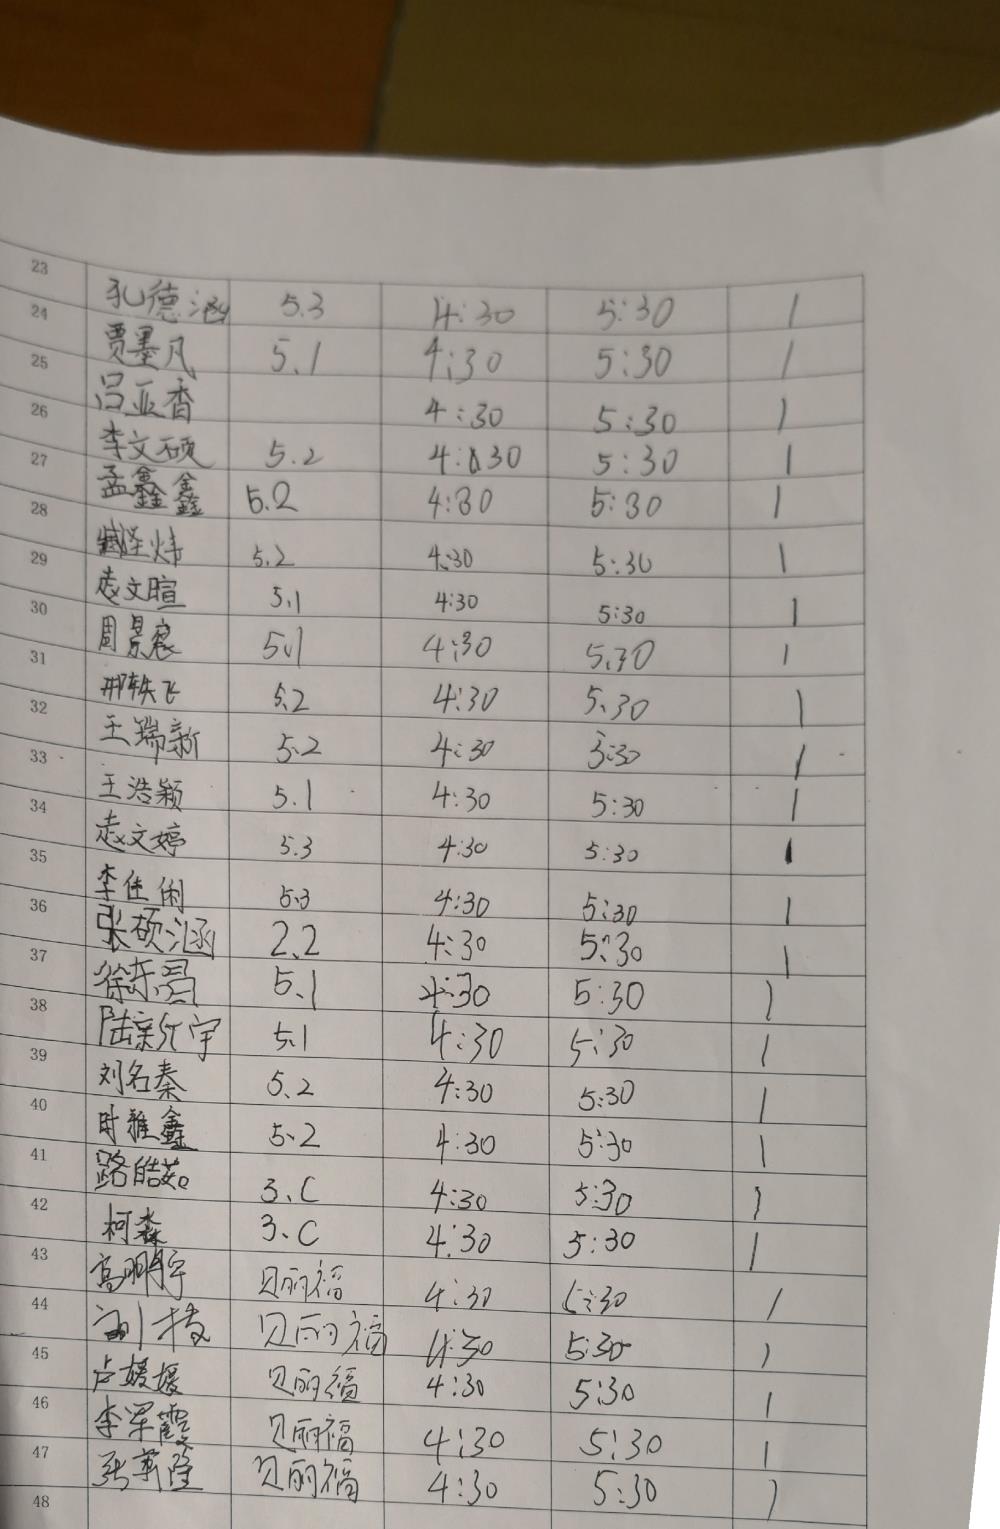 23
24 孔德涵 5.3 4:30 5:30 1
25 贾墨凡 5.1 4:30 5:30 1
26 吕亚香 4:30 5:30 1
27 李文硕 5.2 4:30 5:30 1
28 孟鑫鑫 5.2 4:30 5:30 1
29 5.2 4:30 5:30 1
30 文暄 5.1 4:30 5:30 1
31 周景 5.1 4:30 5.30 1
32 邢轶飞 5.2 4:30 5.30 1
33 王瑞新 5.2 4:30 5:30 1
34 王浩颖 5.1 4:30 5:30 1
35 文婷 5.3 4:30 5:30 1
36 李佳俐 5.3 4:30 5:30 1
37 张硕涵 2.2 4:30 5:30 1
38 徐东 5.1 4:30 5:30 1
39 陆 宇 5.1 4:30 5:30 1
40 刘名秦 5.2 4:30 5:30 1
41 时雅鑫 5.2 4:30 5:30 1
42 路皓茹 3.C 4:30 5:30 1
43 柯森 3.C 4.30 5:30 1
44 高明宇 贝丽福 4:30 5:30 1
45 贝丽福 4:30 5:30 1
46 卢媛媛 贝丽福 4:30 5:30 1
47 李军霞 贝丽福 4:30 5:30 1
48 张 隆 贝丽福 4:30 5:30 1